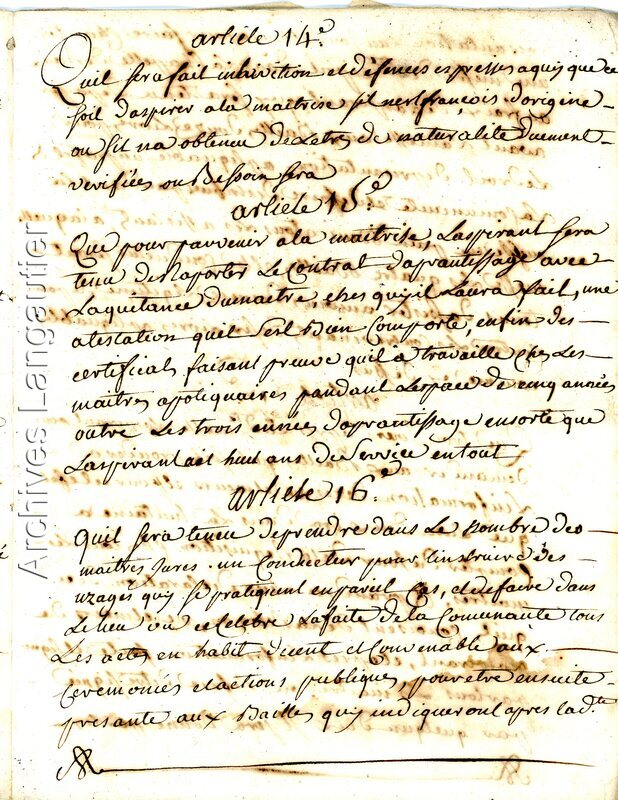 article 14.e
Quil sera fait inhiviction et defences espresses a quy que ce
soit d'aspirer a la maitrise sil nest françois dorigine
ou sil na obtenu de letres de naturalité duement
verifiées ou Besoin sera
article 15.e
Que pour parvenir a la maitrise, Laspirant sera
tenu de Raporter Le Contrat daprantissage avec
La quitance du maitre, ches quy il Laura fait, une
atestation quil sest Bien Comporté, enfin des
certificats faisant preuve quil a travaillé ches Les
maitres apotiquaires pandant Lespace de cinq années
outre Les trois ennées daprantissage ensorte que
Laspirant ait huit ans de Service en tout
article 16.e
Quil sera tenu de prendre dans Le Nombre des
maitres jures un Conducteur pour linstruire des
uzages quy se pratiquent en pareil Cas, et de faire dans
Le lieu ou ce Celebre La faite de la Communauté tous
Les actes en habit decent et Convenable aux
Ceremonies et actions publiques, pour etre ensuite
presanté aux Bailles quy indiqueront apres lad.te
Archives Langautier